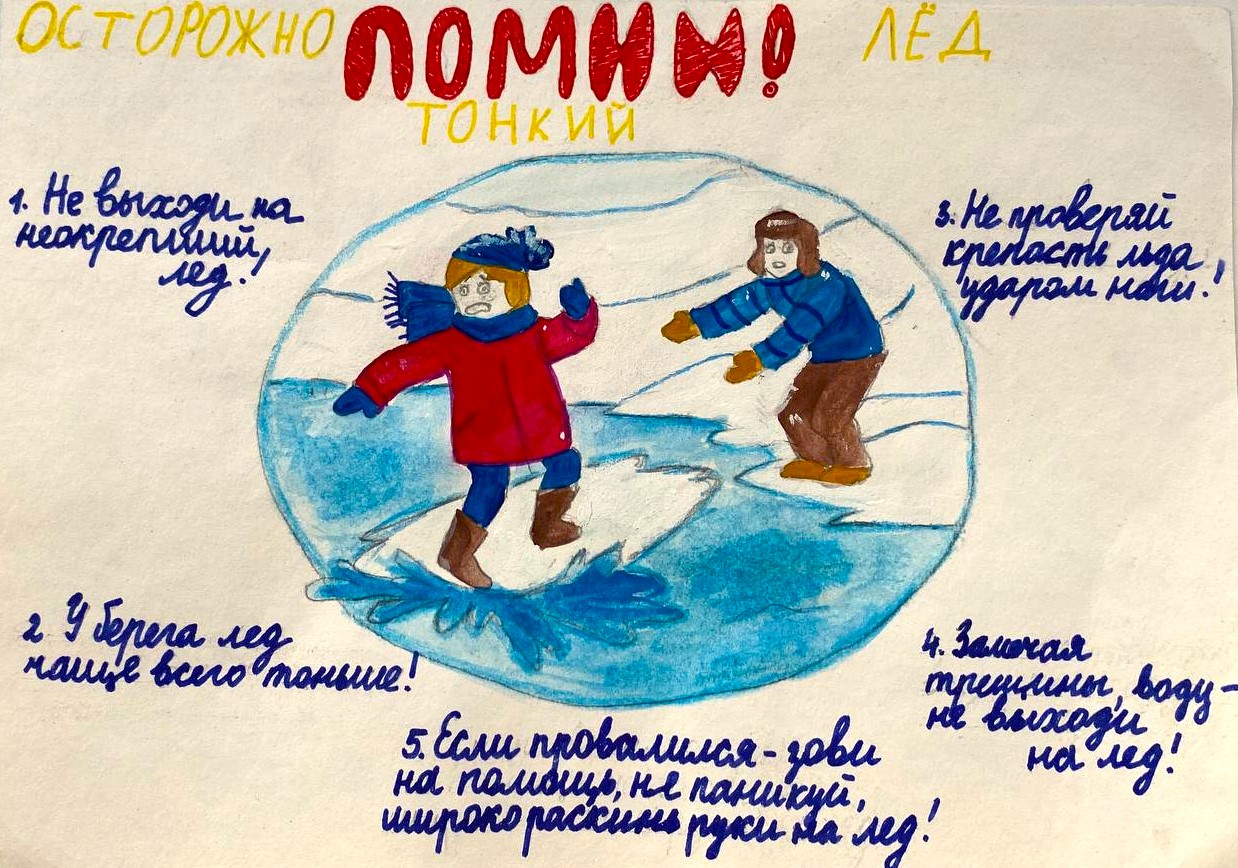 ОСТОРОЖНО ПОМНИ! ЛЁД
ТОНКИЙ
1. Не выходи на
неокрепший,
лед!
3. Не проверяй
крепасть льда,
ударом ноги!
2 У берега лед
чаще всего тоньше!
4. Замечая
трещины, воду -
не выходи
на лед!
5. Если провалился - зови
на помощь, не паникуй,
широко раскинь руки на лед!